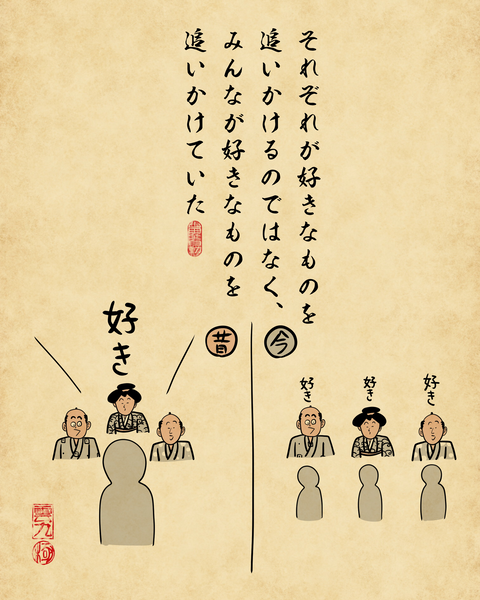 それぞれが好きなものを
追いかけるのではなく、
みんなが好きなものを
追いかけていた
今
昔
好き
好き
好き
好き